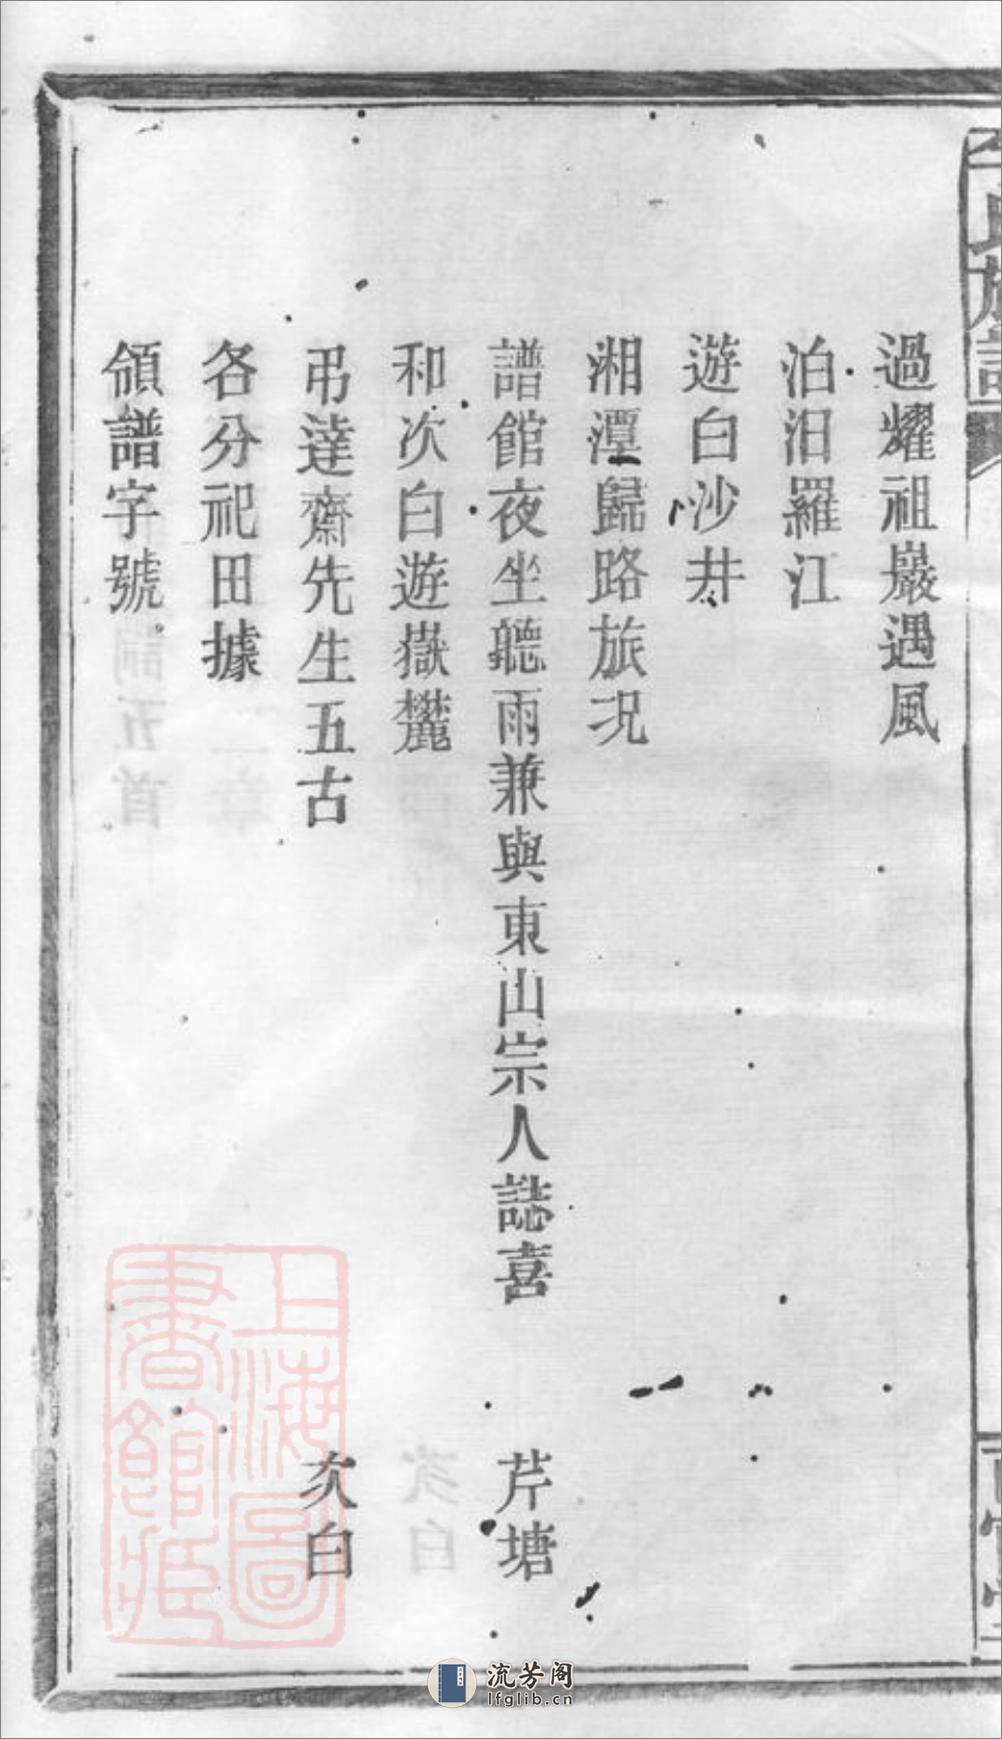 過耀祖巖遇風
泊汨羅江
遊白沙井
湘潭歸路旅況
譜館夜坐聽雨兼與東山宗人誌喜 芹塘
和次白遊嶽麓
弔達齋先生五古 次白
各分祀田據
領譜字號
上海圖書館藏
流芳阁
lfglib.cn